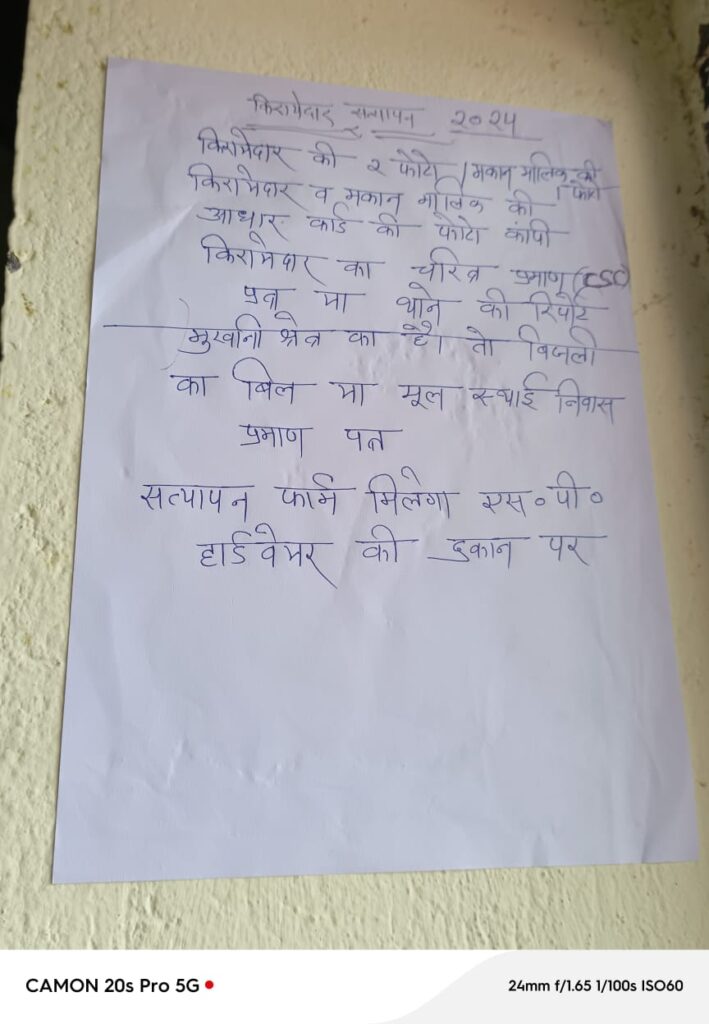 किरायेदार सत्यापन २०२५
किरायेदार की २ फोटो / मकान मालिक की १ फोटो
किरायेदार व मकान मालिक की
आधार कार्ड की फोटो कापी
किरायेदार का चरित्र प्रमाण (CSC)
पत्र या थाने की रिपोर्ट
मुखानी क्षेत्र का है। तो बिजली
का बिल या मूल स्थाई निवास
प्रमाण पत्र
सत्यापन फार्म मिलेगा एस॰ पी॰
हार्डवेयर की दुकान पर
CAMON 20s Pro 5G
24mm f/1.65 1/100s ISO60